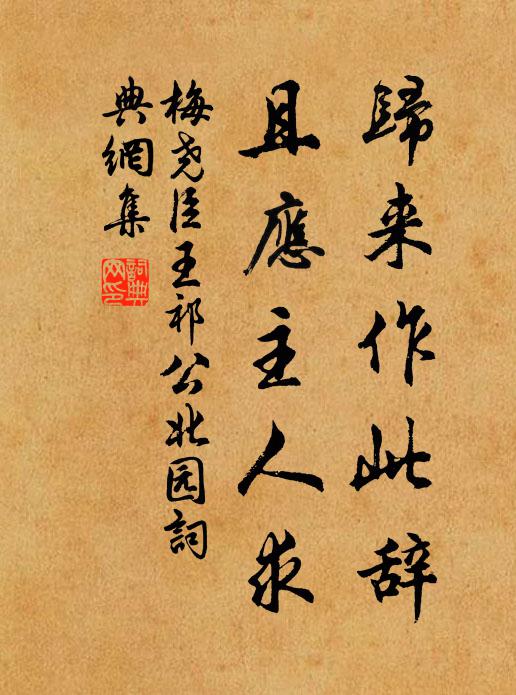 歸来作此辞
且應主人求
梅堯臣王祁公北园詞
典網集
詞典网印